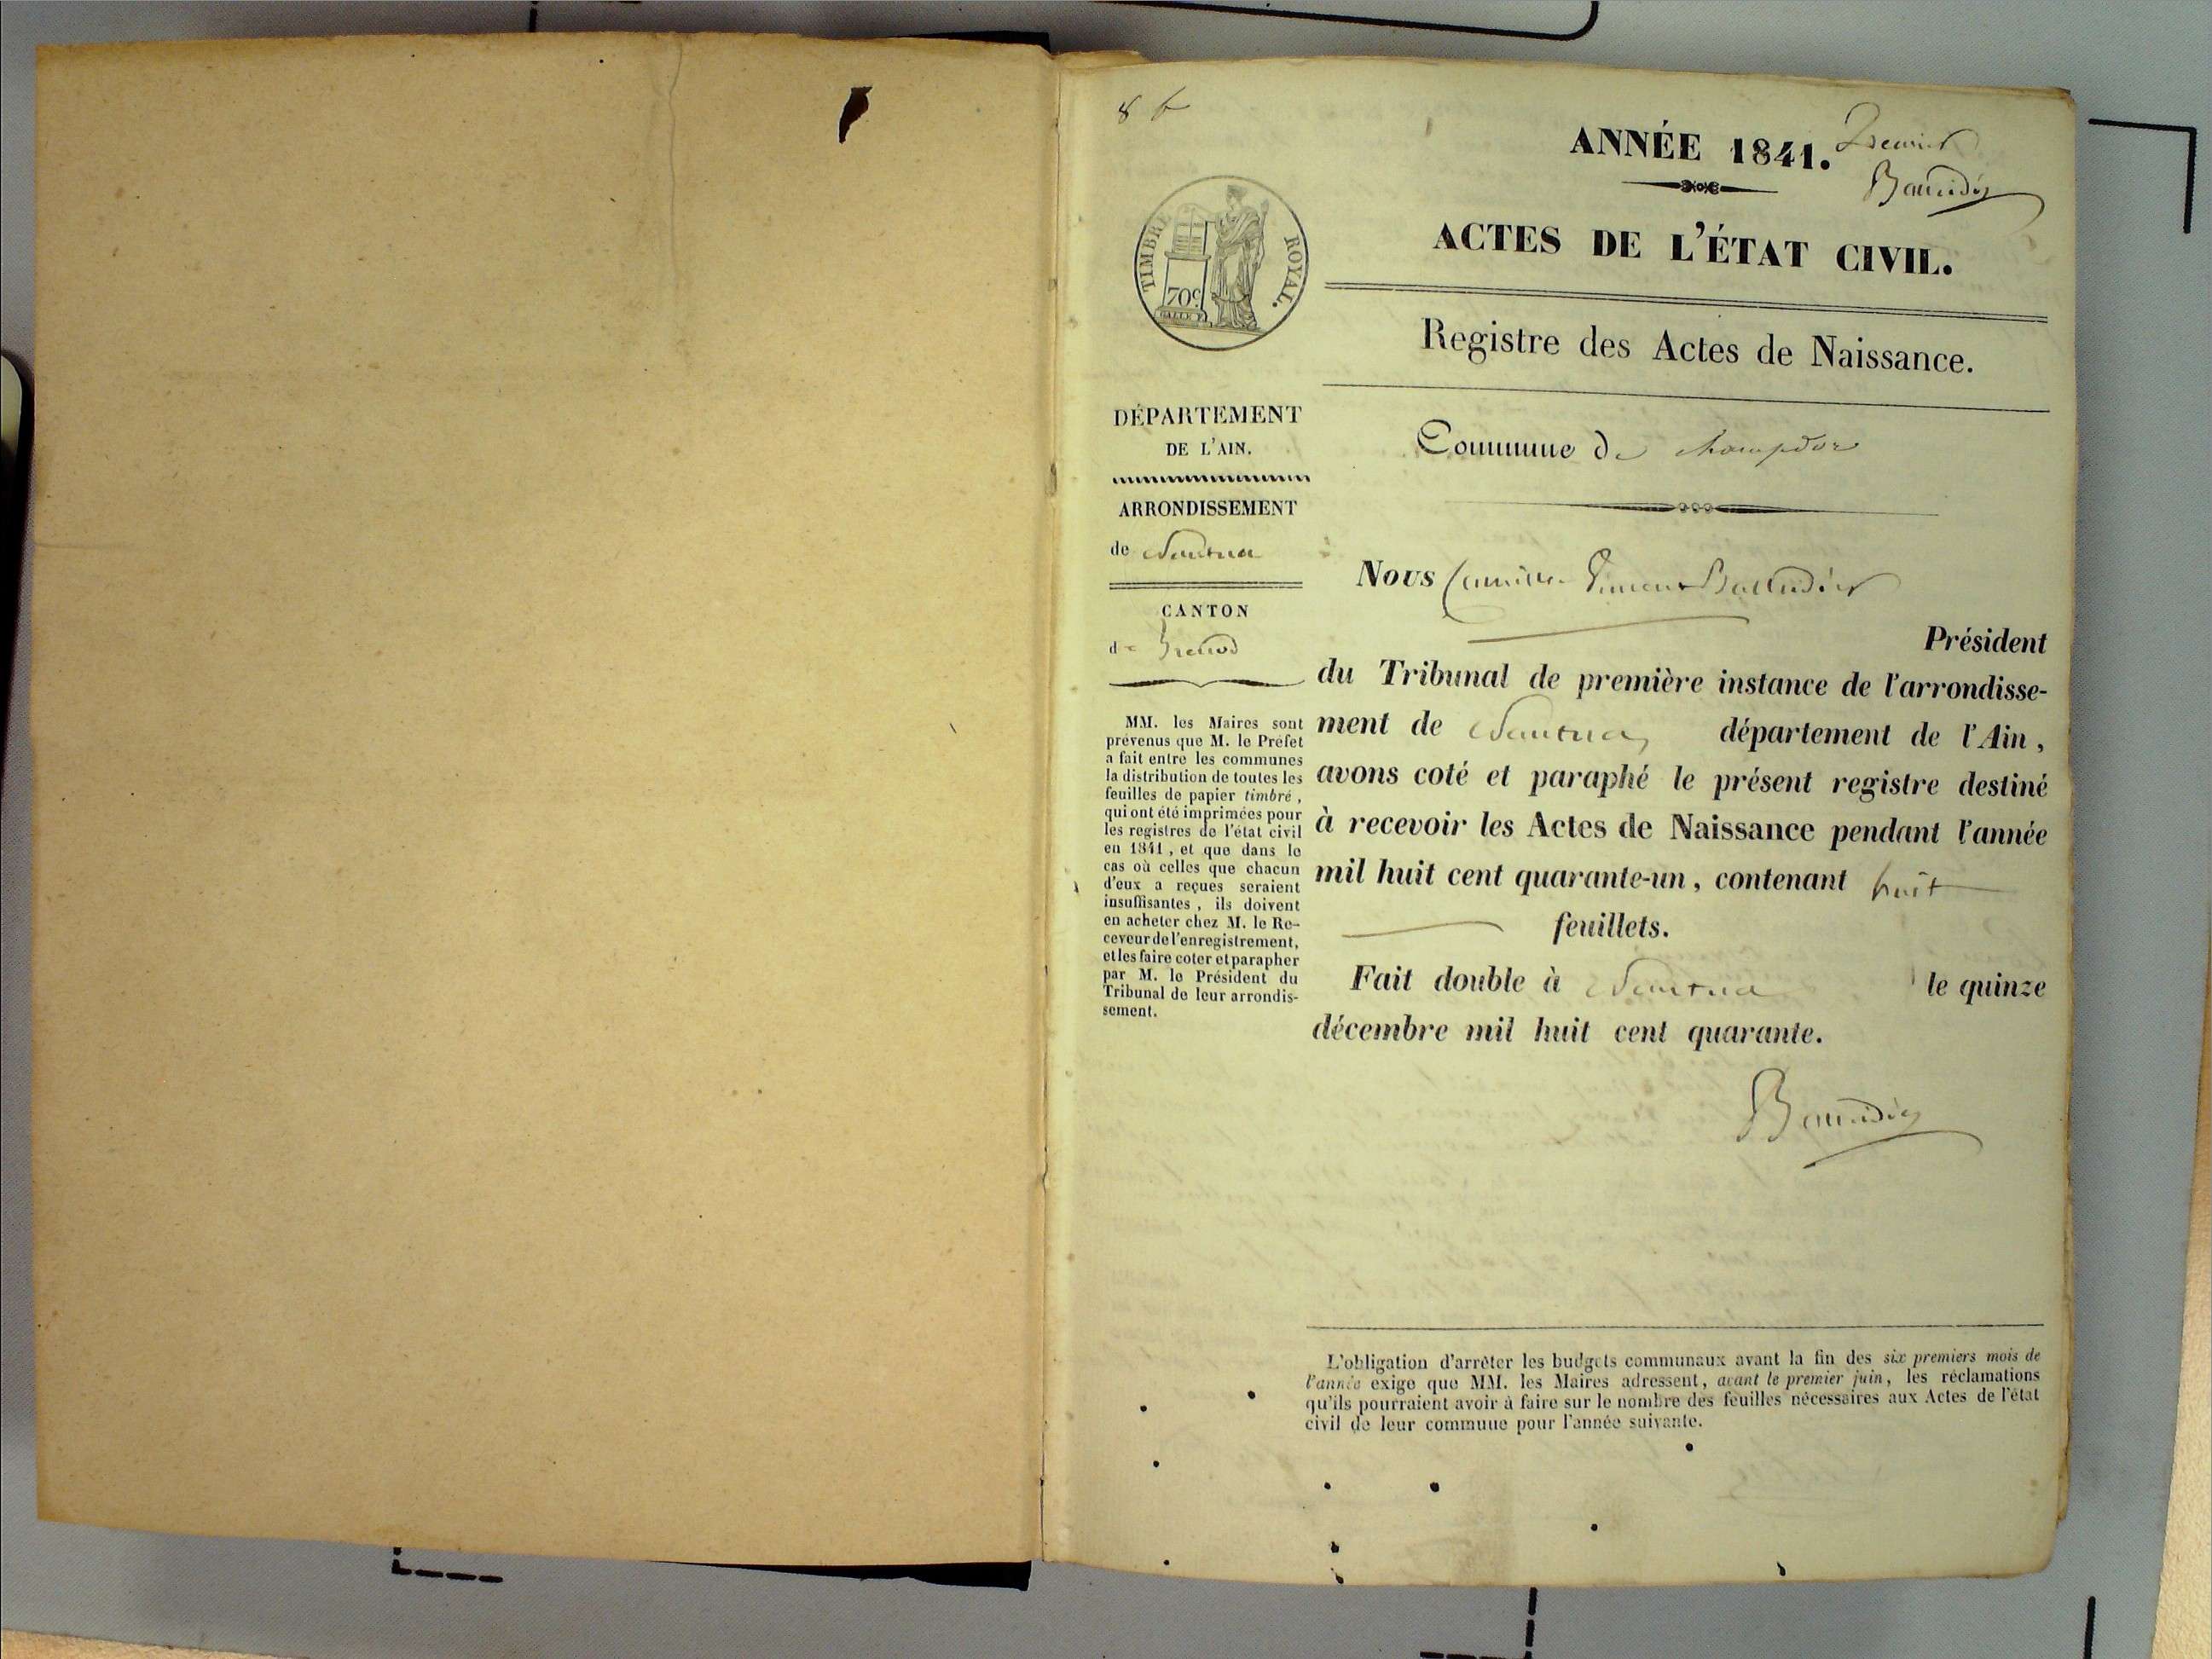 8 f
ANNÉE 1841. Premier
ACTES DE L'ÉTAT CIVIL.
TIMBRE ROYAL.
70c
Registre des Actes de Naissance.
DÉPARTEMENT
DE L'AIN.
ARRONDISSEMENT
de Nantua
CANTON
de Brenod
MM. les Maires sont
prévenus que M. le Préfet
a fait entre les communes
la distribution de toutes les
feuilles de papier timbré,
qui ont été imprimées pour
les registres de l'état civil
en 1841, et que dans le
cas où celles que chacun
d'eux a reçues seraient
insuffisantes, ils doivent
en acheter chez M. le Re-
ceveur de l'enregistrement,
et les faire coter et parapher
par M. le Président du
Tribunal de leur arrondis-
sement.
Commune de champdor
Nous
Président
du Tribunal de première instance de l'arrondisse-
ment de Nantua département de l'Ain,
avons coté et paraphé le présent registre destiné
à recevoir les Actes de Naissance pendant l'année
mil huit cent quarante-un, contenant huit
feuillets.
Fait double à Nantua le quinze
décembre mil huit cent quarante.
L'obligation d'arrêter les budgets communaux avant la fin des six premiers mois de
l'année exige que MM. les Maires adressent, avant le premier juin, les réclamations
qu'ils pourraient avoir à faire sur le nombre des feuilles nécessaires aux Actes de l'état
civil de leur commune pour l'année suivante.